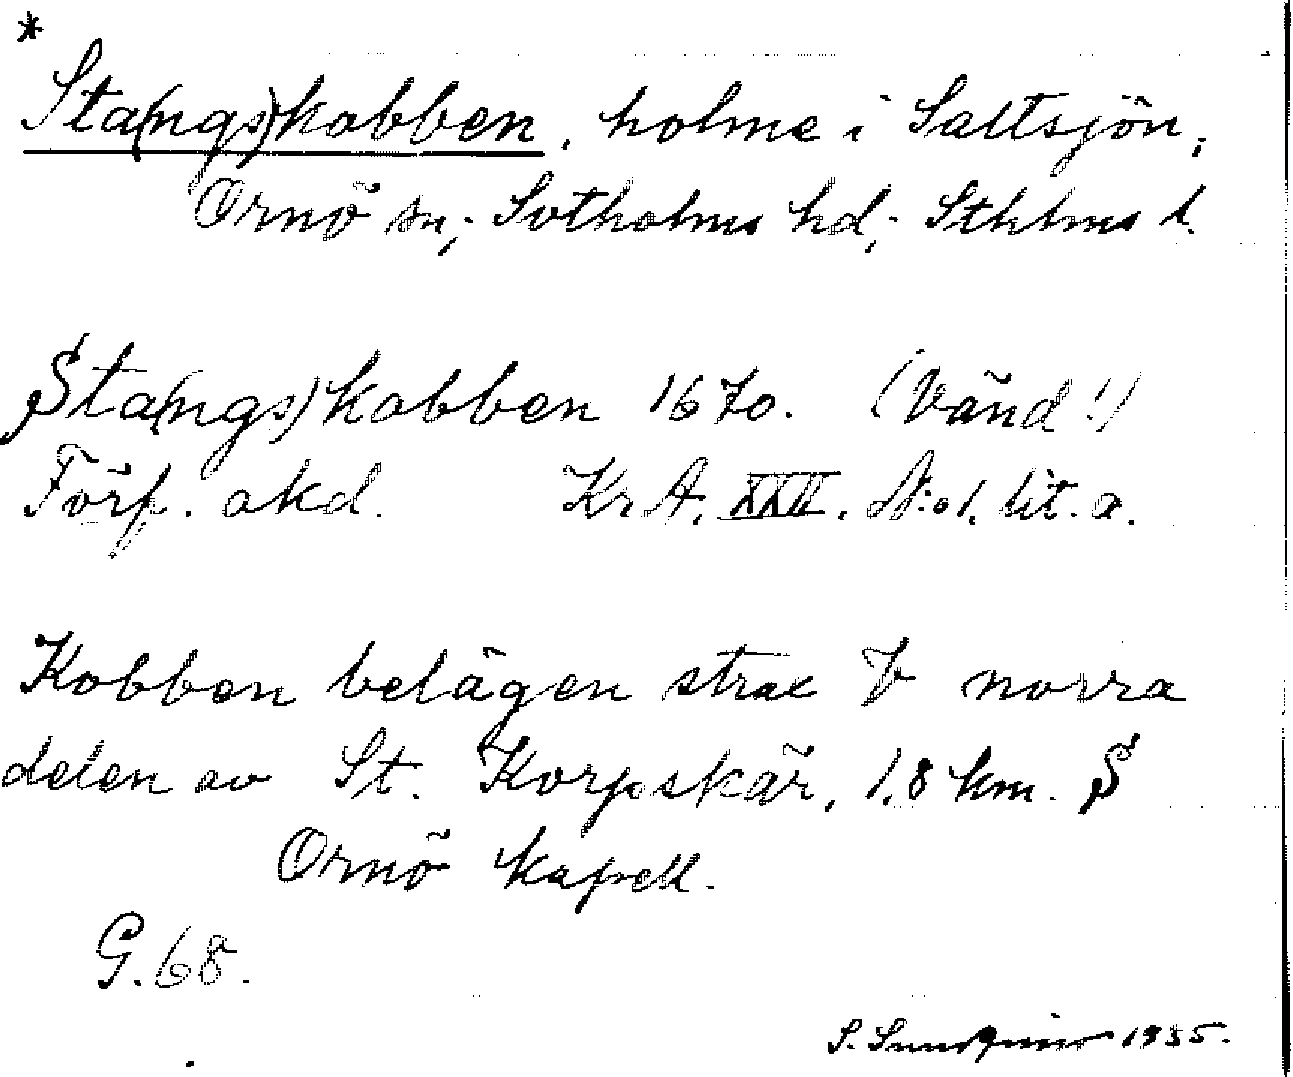 *
Sta(ngs)kobben, holme i Saltsjön,
Ornö sn; Sotholms hd; Sthlms l.
Sta(ngs)kobben 1670. (Vänd!)
Förf. okd. Kr A. XXII. N:o 1. lit. a.
Kobben belägen strax V norra
delen av St. Korpskär, 1,8 km. S
Ornö kapell.
G. 68.
S. 1935.